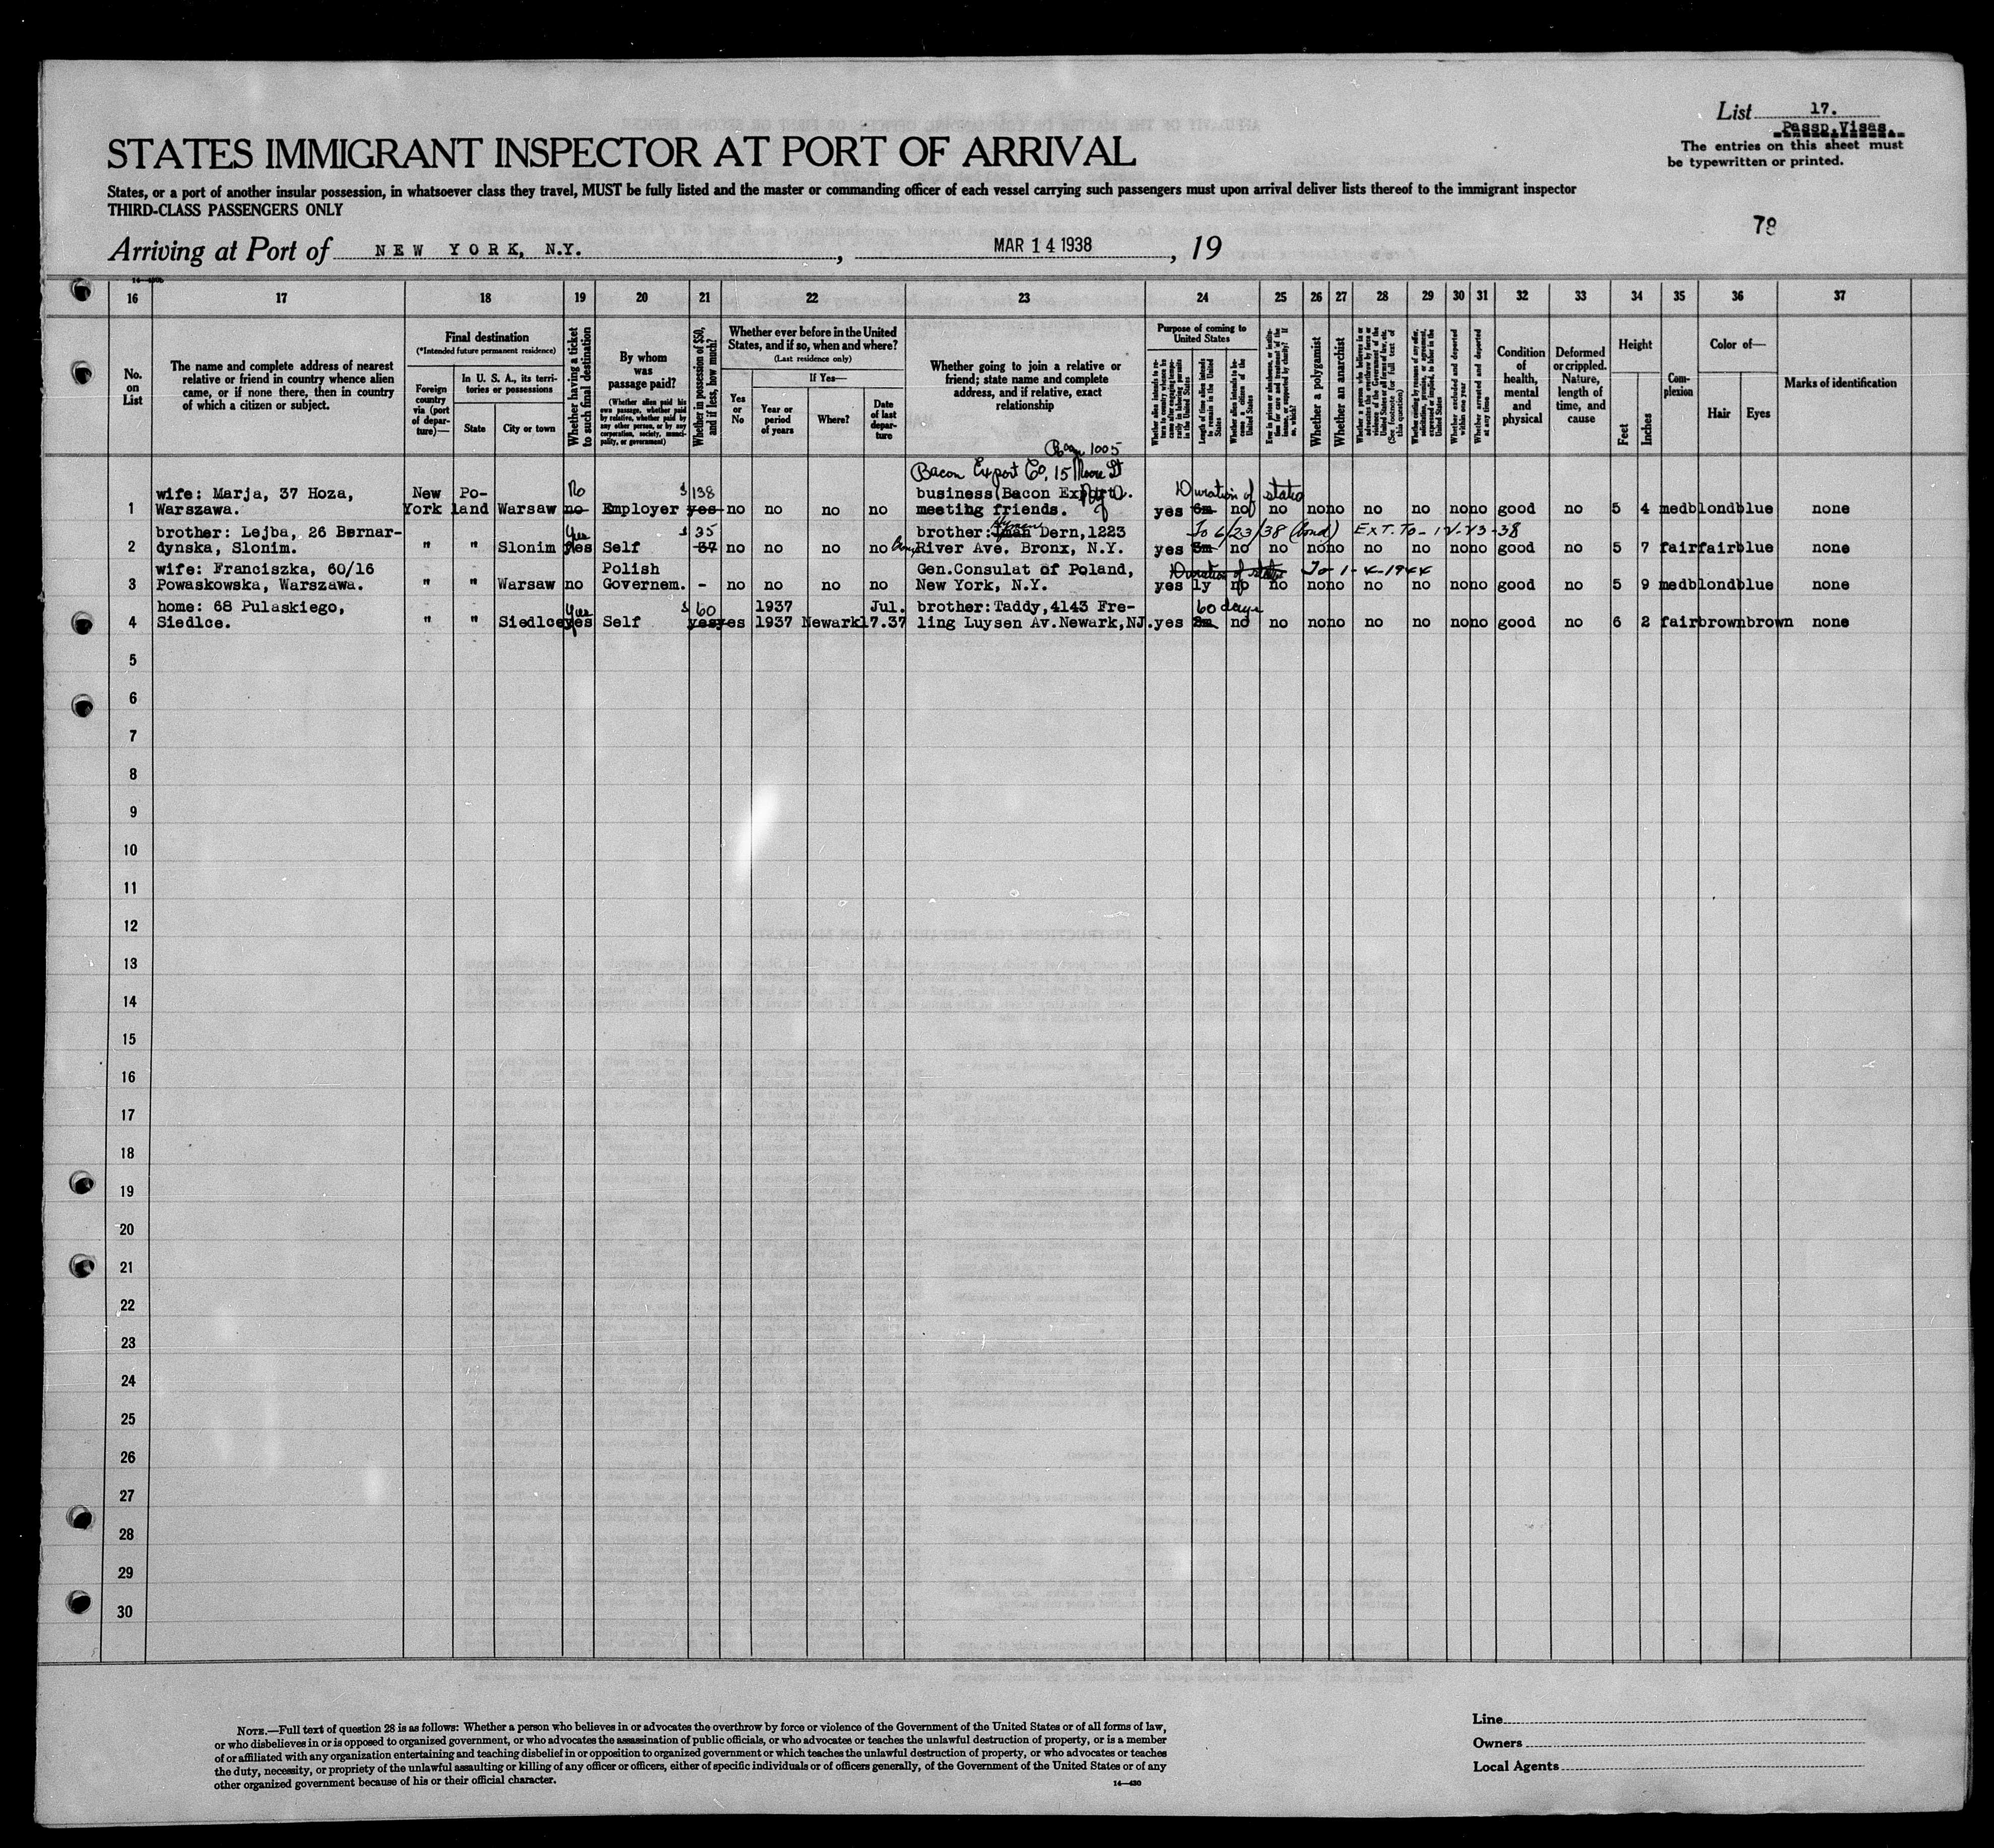 List 17.
Passp.Visas.
The entries on this sheet must
be typewritten or printed.
STATES IMMIGRANT INSPECTOR AT PORT OF ARRIVAL
States, or a port of another insular possession, in whatsoever class they travel, MUST be fully listed and the master or commanding officer of each vessel carrying such passengers must upon arrival deliver lists thereof to the immigrant inspector
THIRD-CLASS PASSENGERS ONLY
78
Arriving at Port of NEW YORK, N.Y. , MAR 14 1938 , 19
16 17 18 19 20 21 22 23 24 25 26 27 28 29 30 31 32 33 34 35 36 37
No. on List
The name and complete address of nearest
relative or friend in country whence alien
came, or if none there, then in country
of which a citizen or subject.
Final destination
(*Intended future permanent residence)
Foreign country via (port of departure)—
In U. S. A., its territories or possessions
State
City or town
Whether having a ticket to such final destination
By whom was passage paid?
(Whether alien paid his own passage, whether paid by relative, whether paid by any other person, or by any corporation, society, municipality, or government)
Whether in possession of $50, and if less, how much?
Whether ever before in the United
States, and if so, when and where?
(Last residence only)
Yes or No
If Yes—
Year or period of years
Where?
Date of last departure
Whether going to join a relative or
friend; state name and complete
address, and if relative, exact
relationship
Purpose of coming to
United States
Length of time alien intends to remain in the United States
Whether alien intends to become a citizen of the United States
Whether a polygamist
Whether an anarchist
Whether excluded and deported within one year
Whether arrested and deported at any time
Condition of health, mental and physical
Deformed or crippled. Nature, length of time, and cause
Height
Feet
Inches
Complexion
Color of—
Hair
Eyes
Marks of identification
Room 1005
Bacon Export Co, 15 Moore St
1 wife: Marja, 37 Hoza, New Po- No $138 business(Bacon Export Duration of status
Warszawa. York land Warsaw no Employer yes no no no no meeting friends. yes 6m no no no no no no no no good no 5 4 med blond blue none
2 brother: Lejba, 26 Bernar- Yes $35 brother: Hyman Dern, 1223 To 6/23/38 (bond) EXT. TO - 12-23-38
dynska, Slonim. " " Slonim yes Self 37 no no no no River Ave. Bronx, N.Y. yes 3m no no no no no no no no good no 5 7 fair fair blue none
3 wife: Franciszka, 60/16 Polish Gen.Consulat of Poland, Duration of status To 1-4-1944
Powaskowska, Warszawa. " " Warsaw no Governem. - no no no no New York, N.Y. yes 1y no no no no no no no no good no 5 9 med blond blue none
4 home: 68 Pulaskiego, Yes $60 1937 Jul. brother: Taddy, 4143 Fre- 60 days
Siedlce. " " Siedlce yes Self yes yes 1937 Newark 17.37 ling Luysen Av.Newark,NJ. yes 2m no no no no no no no no good no 6 2 fair brown brown none
5
6
7
8
9
10
11
12
13
14
15
16
17
18
19
20
21
22
23
24
25
26
27
28
29
30
NOTE.—Full text of question 28 is as follows: Whether a person who believes in or advocates the overthrow by force or violence of the Government of the United States or of all forms of law,
or who disbelieves in or is opposed to organized government, or who advocates the assassination of public officials, or who advocates or teaches the unlawful destruction of property, or is a member
of or affiliated with any organization entertaining and teaching disbelief in or opposition to organized government or which teaches the unlawful destruction of property, or who advocates or teaches
the duty, necessity, or propriety of the unlawful assaulting or killing of any officer or officers, either of specific individuals or of officers generally, of the Government of the United States or of any
other organized government because of his or their official character.
14—430
Line
Owners
Local Agents